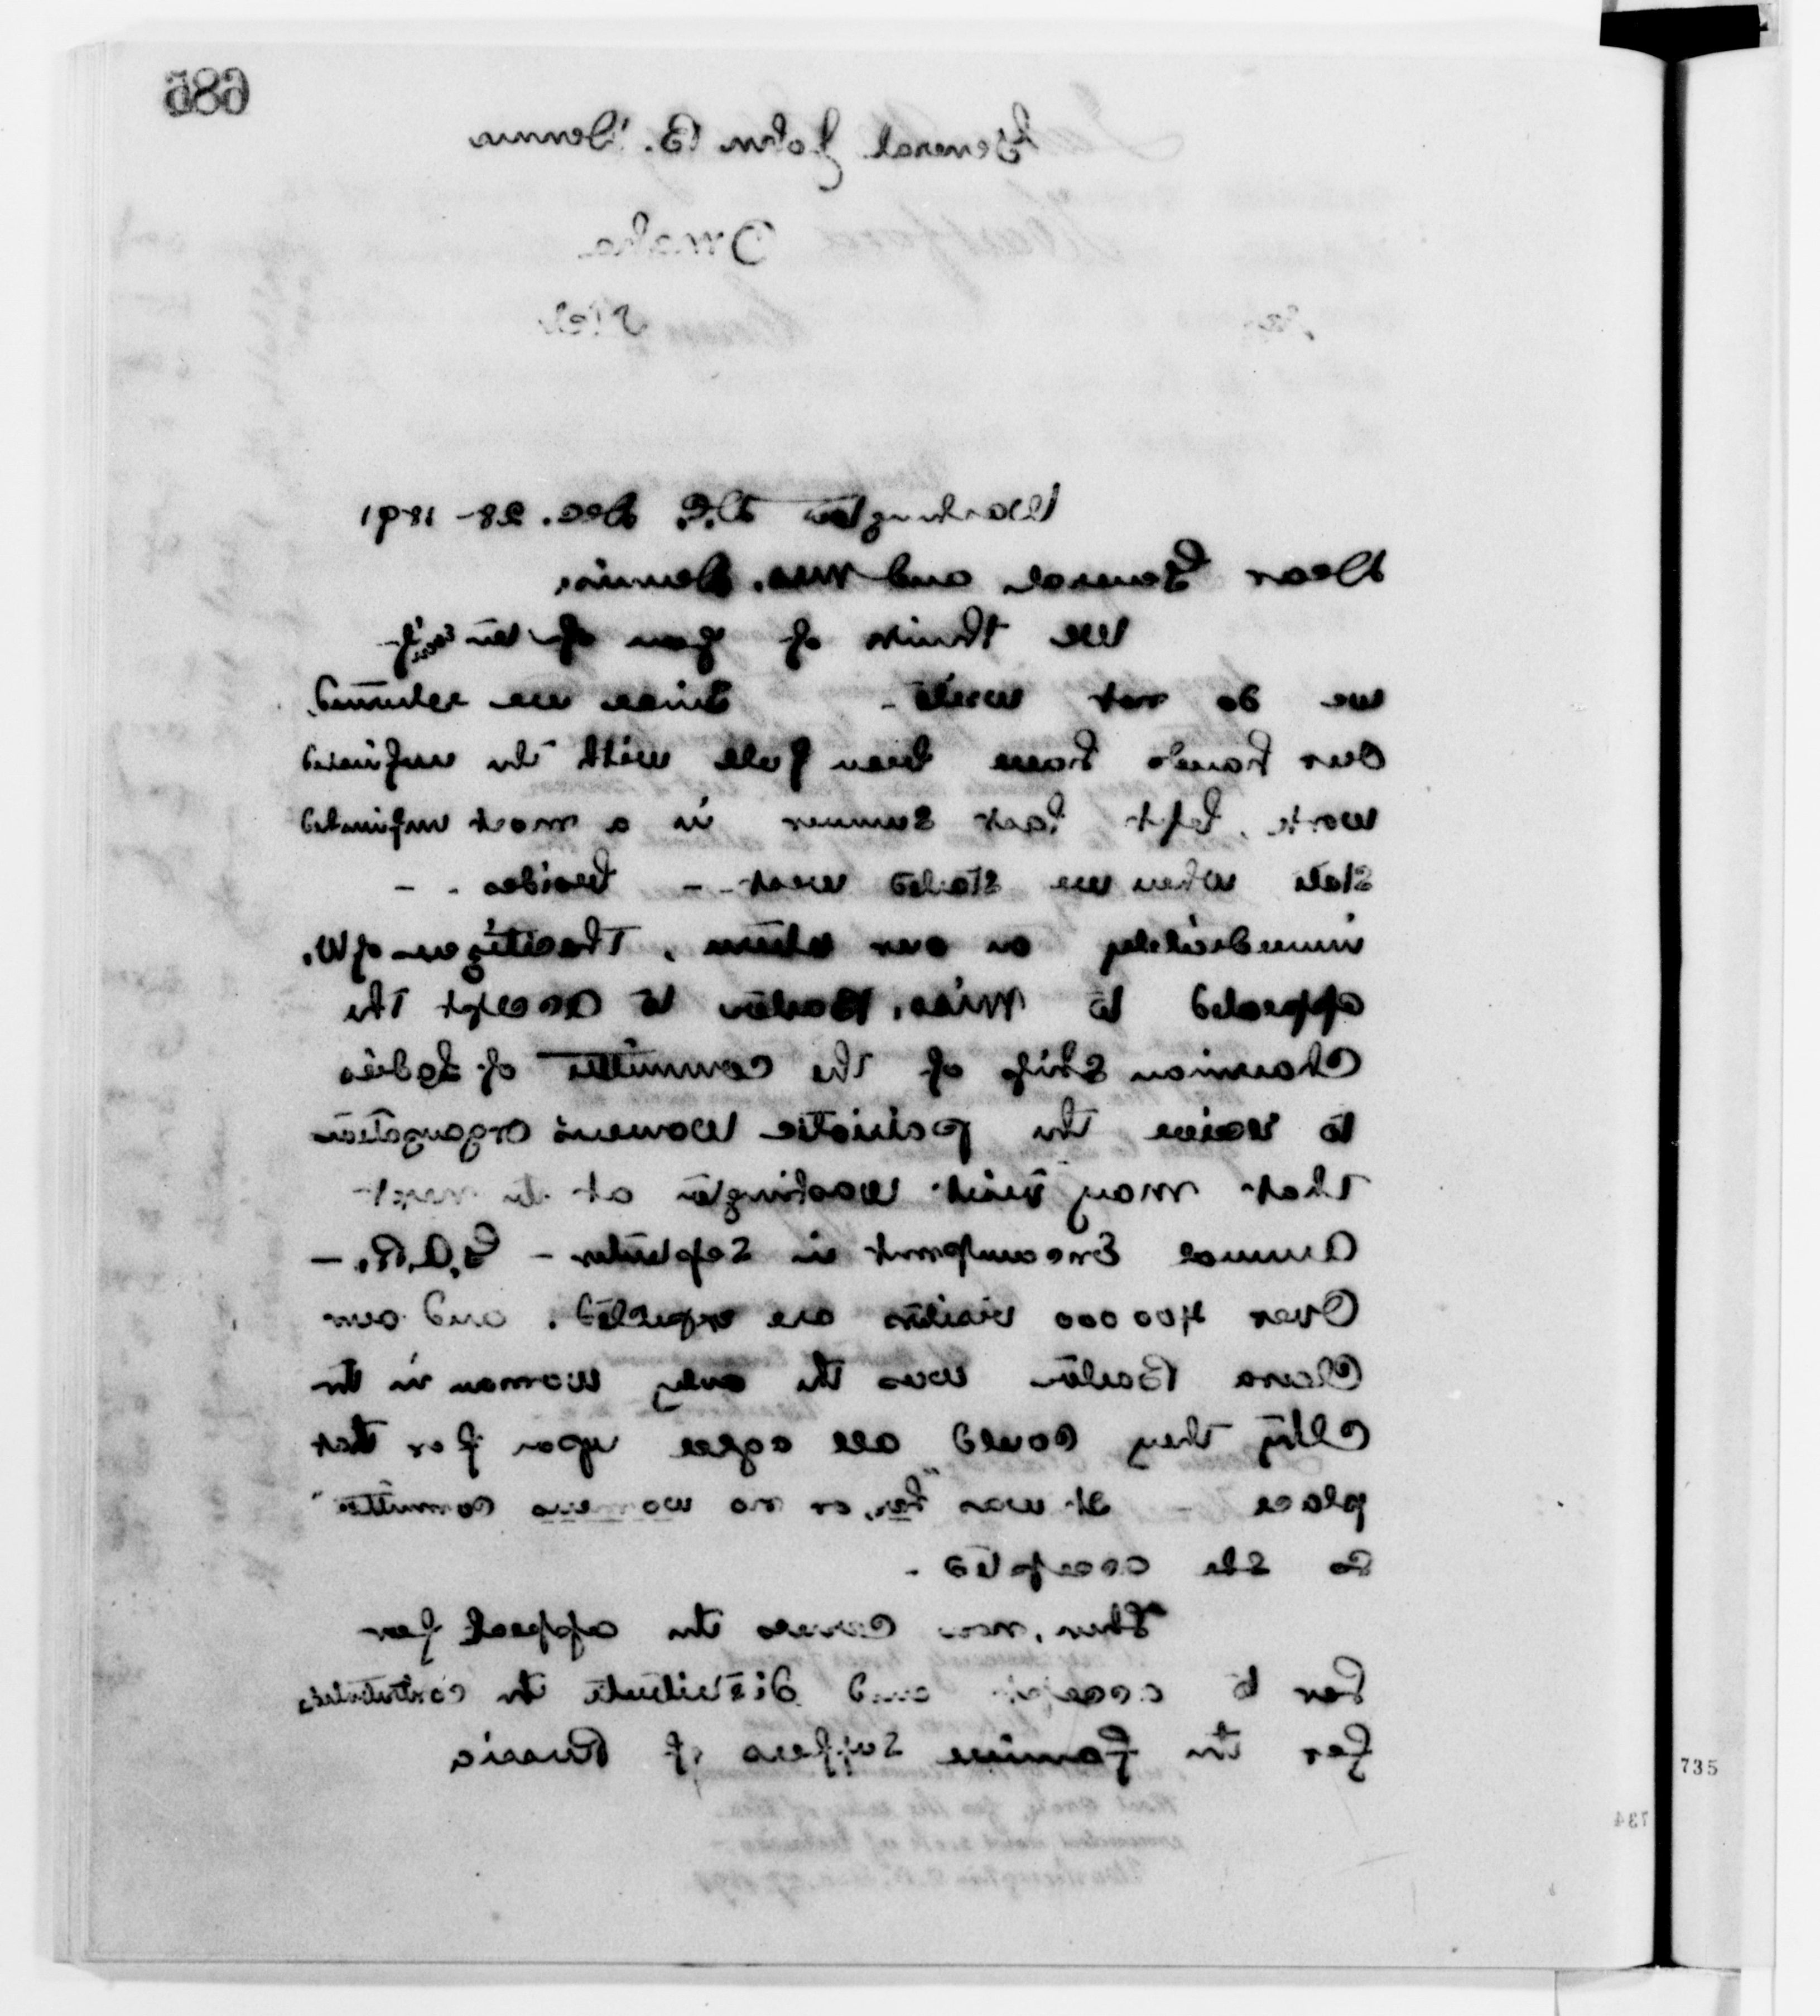 685
General John B. Dennis
Omaha
Neb
Washington D.C. Dec. 28- 1891
Dear General and Mrs. Dennis,
We think of you often if
we do not write - Since we returned
our hands have been full with the unfinished
work, left last summer in a most unfinished
state when we started west - - besides - -
immediately on our return, The citizens of W.
appealed to Miss. Barton to accept the
Chairman Ship of the Committee of Ladies
to receive the patriotic Womens organization
that may visit Washington at the next
Annual Encampment in September - G.A.R. -
Over 400 000 visitors are expected, and our
Clara Barton was the only woman in the
City they could all agree upon for that
place - It was "her, or no womens committee"
So she accepted -
Then, now comes the appeal for
her to accept and distribute the contributions
for the Famine Suffers of Russia
735
734